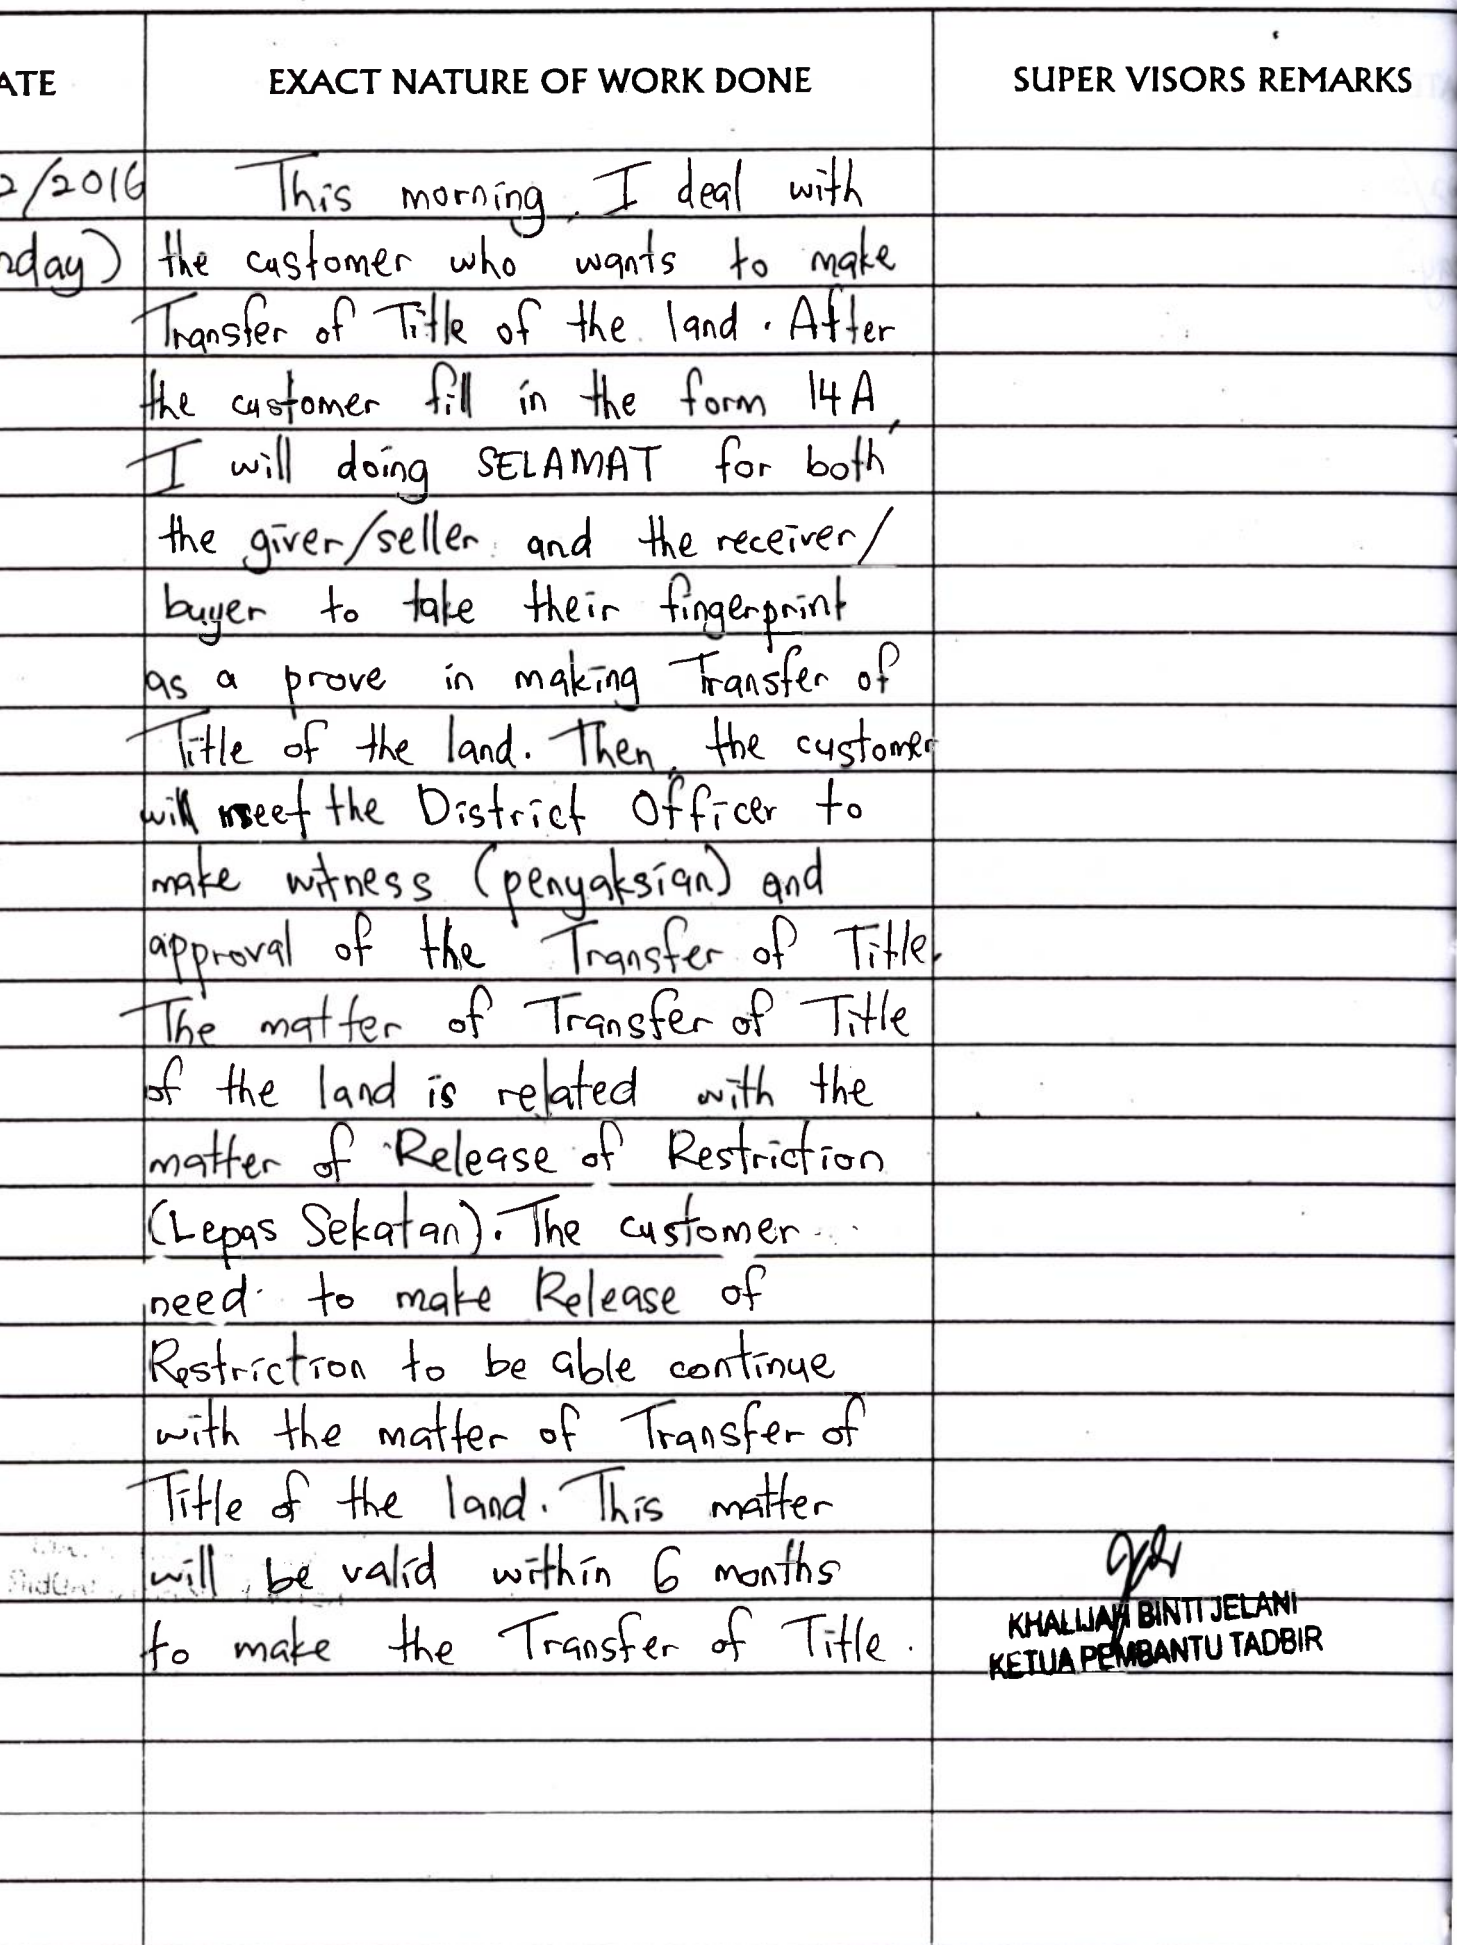 ATE EXACT NATURE OF WORK DONE SUPER VISORS REMARKS
2/2016 This morning, I deal with
nday) the customer who wants to make
Transfer of Title of the land. After
the customer fill in the form 14A,
I will doing SELAMAT for both
the giver/seller and the receiver/
buyer to take their fingerprint
as a prove in making Transfer of
Title of the land. Then, the customer
will meet the District Officer to
make witness (penyaksian) and
approval of the Transfer of Title.
The matter of Transfer of Title
of the land is related with the
matter of Release of Restriction
(Lepas Sekatan). The customer
need to make Release of
Restriction to be able continue
with the matter of Transfer of
Title of the land. This matter
will be valid within 6 months
to make the Transfer of Title.
KHALIJAH BINTI JELANI
KETUA PEMBANTU TADBIR